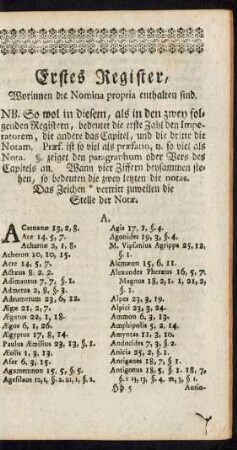 Erstes Register,
Worinnen die Nomina propria enthalten sind.
NB. So wol in diesem, als in den zwey fol-
genden Registern, bedeutet die erste Zahl den Impe-
ratorem, die andere das Capitel, und die dritte die
Notam. Præf. ist so viel als præfatio, n. so viel als
Nota. §. zeiget den paragraphum oder Vers des
Capitels an. Wann vier Ziffern beysammen ste-
hen, so bedeuten die zwey letzten die notas.
Das Zeichen * vertritt zuweilen die
Stelle der Notæ.
A.
Acarnanæ 13, 2, 8.
Ace 14, 5, 7.
Acharnæ 2, 1, 8.
Acheron 10, 10, 15.
Acre 14, 5, 7.
Actæus 8. 2. 2.
Adimantus 7, 7, §. 1.
Admetus 2, 8, §. 3.
Adrumetum 23, 6, 12.
Ægæ 21, 2, 7.
Ægatus 22, 1, 18.
Ægos 6, 1, 26.
Ægyptus 17, 8, 14.
Paulus Æmilius 23, 13, §. 1.
Æolis 1, 3, 13.
Afer 6, 3, 15.
Agamemnon 15, 5, §. 5.
Agesilaus 12, 1, §. 2. 21, 1, §. 1.
Agis 17, 1, §. 4.
Agonides 19, 3, §. 4.
M. Vipsanius Agrippa 25, 12,
§. 1.
Alcmæon 15, 6, 11.
Alexander Pheræus 16, 5, 7.
Magnus 18, 2, 1. 21, 2,
§. 1.
Alpes 23, 3, 19.
Alpici 23, 3, 24.
Ammon 6, 3, 13.
Amphipolis 5, 2, 14.
Amyntas 11, 3, 10.
Andocides 7, 3, §. 2.
Anicia 25, 2, §. 1.
Antigenes 18, 7, §. 1.
Antigonus 18, 5, §. 1. 18, 7,
Hh 5
Antio-